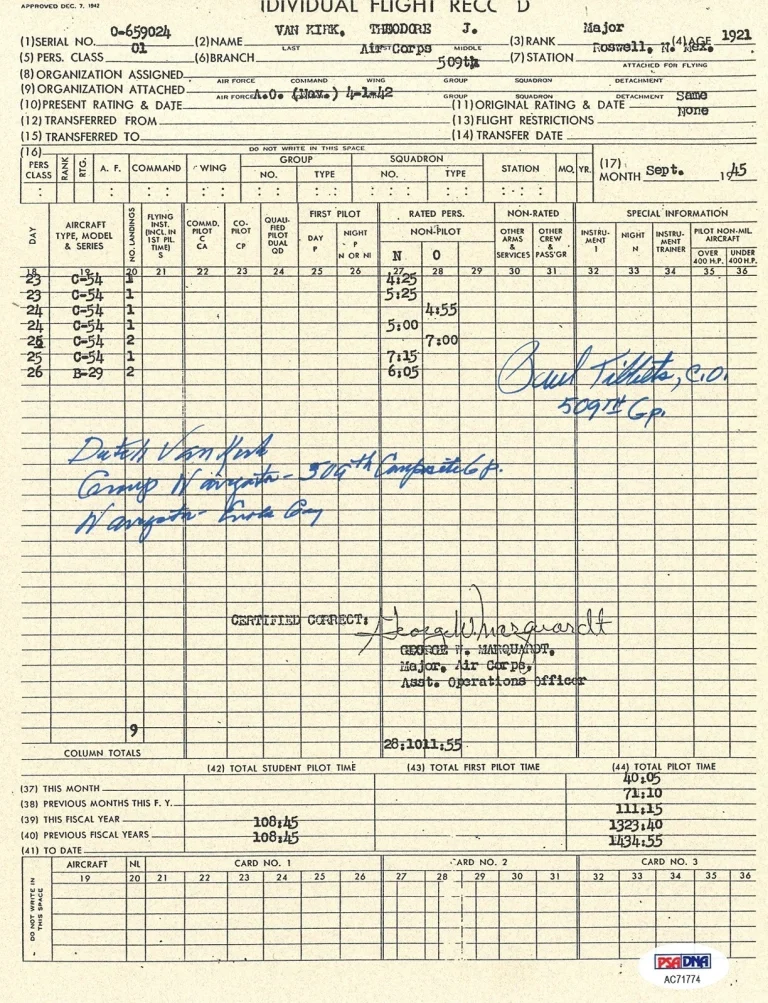 APPROVED DEC. 7, 1942
IDIVIDUAL FLIGHT RECC D
(1) SERIAL NO. O-659024 (2) NAME VAN KIRK, THEODORE J. (3) RANK Major (4) AGE 1921
LAST MIDDLE
(5) PERS. CLASS 01 (6) BRANCH Air Corps (7) STATION Roswell, N. Mex.
509th ATTACHED FOR FLYING
(8) ORGANIZATION ASSIGNED
AIR FORCE COMMAND WING GROUP SQUADRON DETACHMENT
(9) ORGANIZATION ATTACHED
AIR FORCE GROUP SQUADRON DETACHMENT
(10) PRESENT RATING & DATE A.O. (Nav.) 4-1-42 (11) ORIGINAL RATING & DATE Same
(12) TRANSFERRED FROM (13) FLIGHT RESTRICTIONS None
(15) TRANSFERRED TO (14) TRANSFER DATE
(16) DO NOT WRITE IN THIS SPACE
PERS CLASS RANK RTG. A. F. COMMAND WING GROUP NO. TYPE SQUADRON NO. TYPE STATION MO. YR. (17) MONTH Sept. 1945
DAY AIRCRAFT TYPE, MODEL & SERIES NO. LANDINGS FLYING INST. (INCL. IN 1ST PIL. TIME) S COMMD. PILOT C CA CO-PILOT CP QUALI-FIED PILOT DUAL QD FIRST PILOT DAY P NIGHT P N OR NI RATED PERS. NON-PILOT N O NON-RATED OTHER ARMS & SERVICES OTHER CREW & PASS'GR SPECIAL INFORMATION INSTRU-MENT I NIGHT N INSTRU-MENT TRAINER PILOT NON-MIL. AIRCRAFT OVER 400 H.P. UNDER 400 H.P.
18 19 20 21 22 23 24 25 26 27 28 29 30 31 32 33 34 35 36
23 C-54 1 4:25
23 C-54 1 5:25
24 C-54 1 4:55
24 C-54 1 5:00
C-54 2 7:00
25 C-54 1 7:15
26 B-29 2 6:05
Paul Tibbets, C.O.
509TH Gp.
Dutch VanKirk
Group Navigator - 509th Composite Gp.
Navigator - Enola Gay
CERTIFIED CORRECT: George W. Marquardt
GEORGE W. MARQUARDT,
Major, Air Corps,
Asst. Operations Officer
9
COLUMN TOTALS 28:10 11:55
(42) TOTAL STUDENT PILOT TIME (43) TOTAL FIRST PILOT TIME (44) TOTAL PILOT TIME
(37) THIS MONTH 40:05
(38) PREVIOUS MONTHS THIS F. Y. 71:10
(39) THIS FISCAL YEAR 111:15
(40) PREVIOUS FISCAL YEARS 108:45 1323:40
(41) TO DATE 108:45 1434:55
DO NOT WRITE IN THIS SPACE AIRCRAFT NL CARD NO. 1 CARD NO. 2 CARD NO. 3
19 20 21 22 23 24 25 26 27 28 29 30 31 32 33 34 35 36
PSA DNA
AC71774